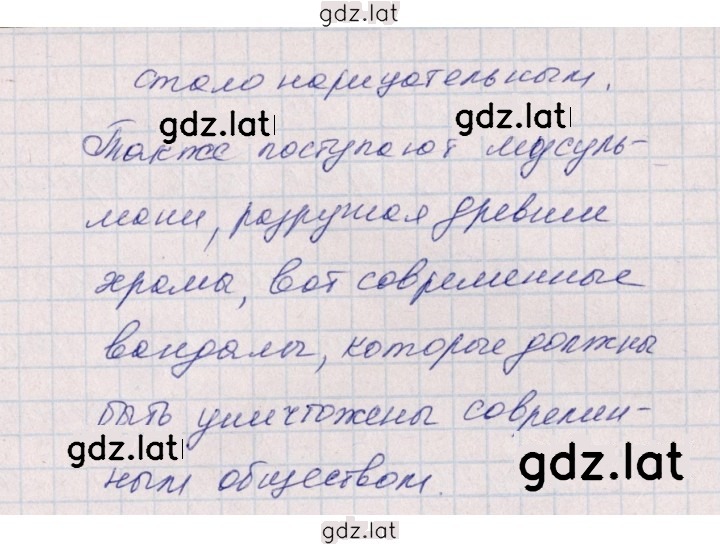 gdz.lat
стало нарицательным.
gdz.lat gdz.lat
Также поступают мусуль-
мани, разрушая древние
храмы, вот современные
вандалы, которые должны
быть уничтожены современ-
gdz.lat gdz.lat
ным обществом.
gdz.lat